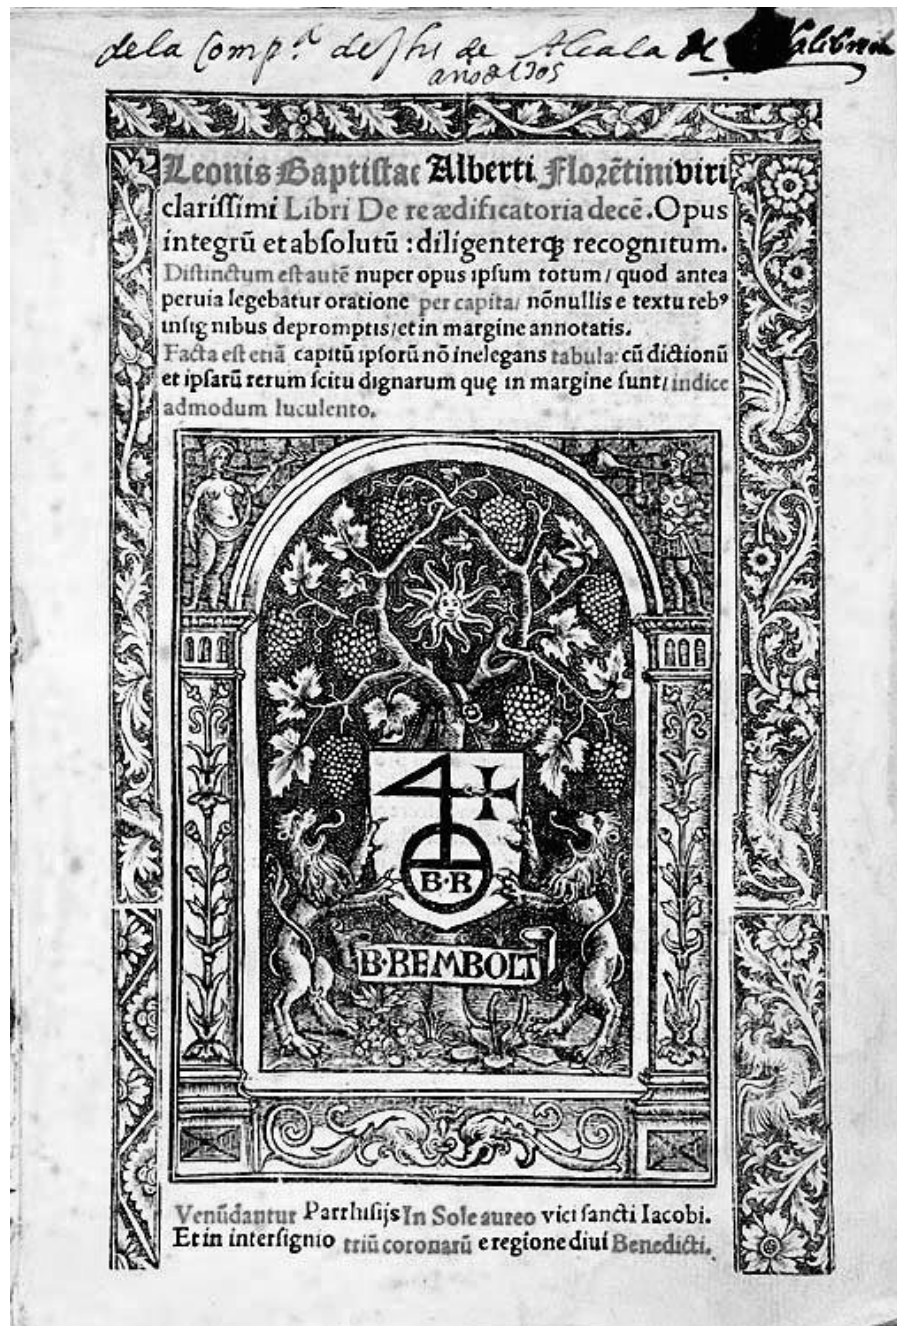 dela Comp.ª de Jhs de Alcala de
año de 1305
Leonis Baptistae Alberti Florẽtini viri
clarissimi Libri De re ædificatoria decẽ. Opus
integrũ et absolutũ : diligenterqꝫ recognitum.
Distinctum est autẽ nuper opus ipsum totum/ quod antea
peruia legebatur oratione per capita/ nõnullis e textu rebꝰ
insignibus depromptis/et in margine annotatis.
Facta est etiã capitũ ipsorũ nõ inelegans tabula: cũ dictionũ
et ipsarũ rerum scitu dignarum quę in margine sunt/ indice
admodum luculento.
B·R
B·REMBOLT
Venũdantur Parrhisijs In Sole aureo vici sancti Iacobi.
Et in intersignio triũ coronarũ e regione diui Benedicti.